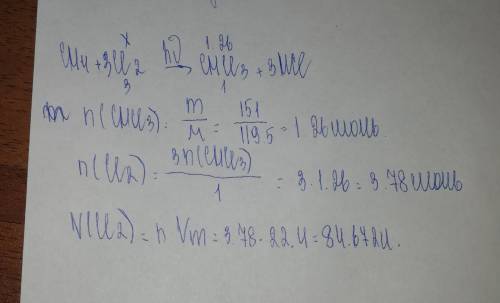 x 1.26
CH4 + 3Cl2 hν→ CHCl3 + 3HCl
3 1
n(CHCl3) = m/M = 151/119.5 = 1.26 моль
n(Cl2) = 3n(CHCl3)/1 = 3·1.26 = 3.78 моль
V(Cl2) = n Vm = 3.78·22.4 = 84.672л.